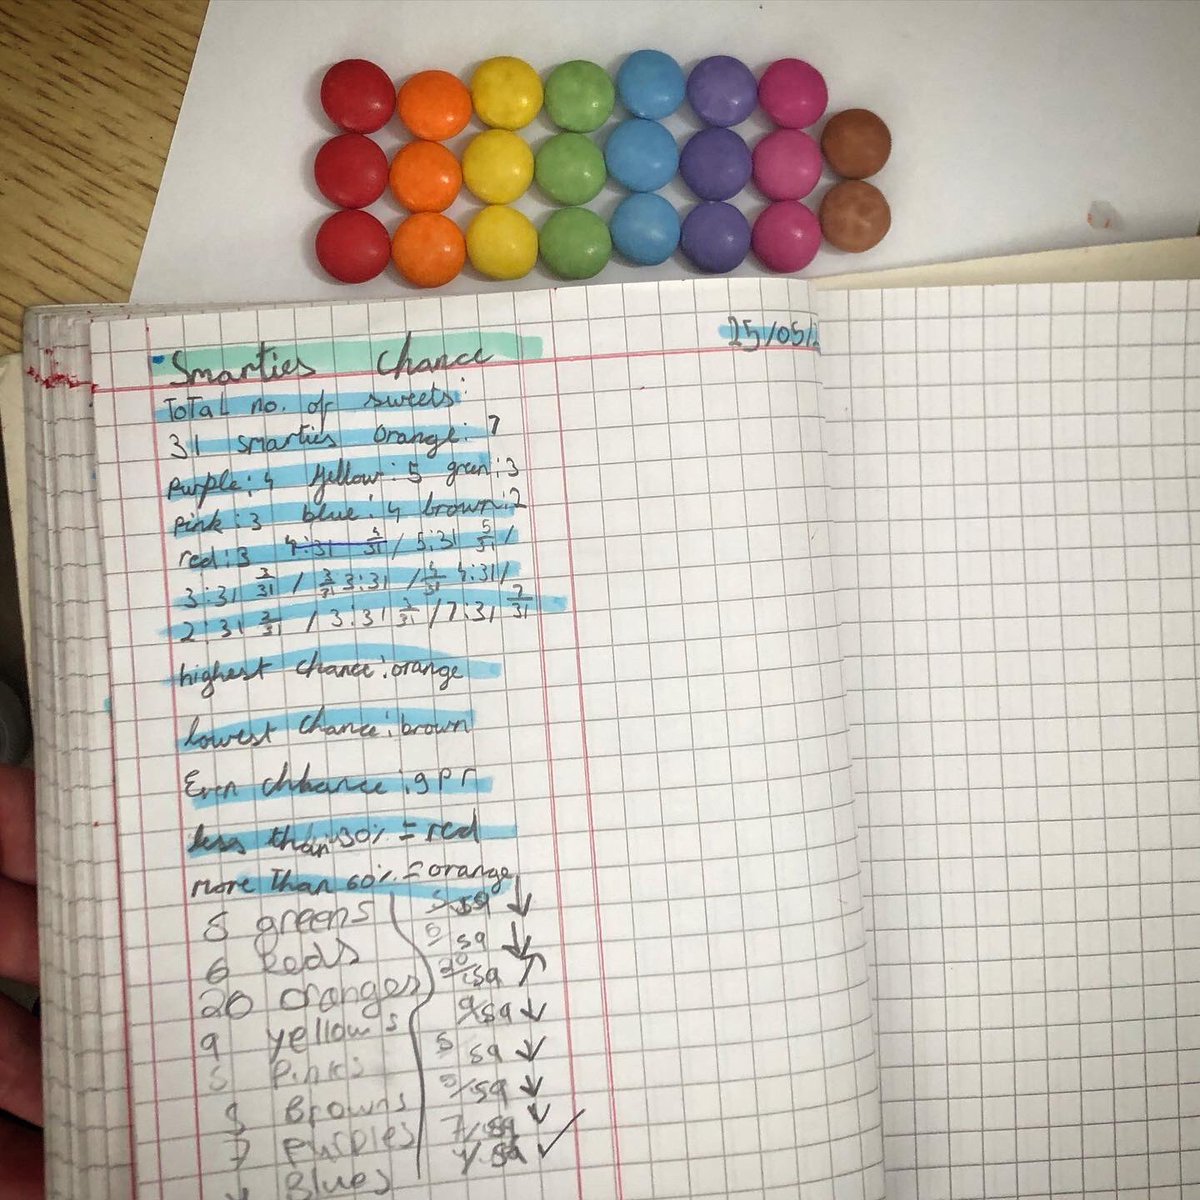 Smarties Chance
25/05/
Total no. of sweets:
31 smarties orange: 7
purple: 4 yellow: 5 green: 3
pink: 3 blue: 4 brown: 2
red: 3 4:31 4/31 / 5:31 5/31 /
3:31 3/31 / 3/31 3:31 / 4/31 4:31 /
2:31 2/31 / 3:31 3/31 / 7:31 7/31
highest chance: orange
lowest chance: brown
Even chance: g p r
less than 30% = red
more than 60% = orange
5 greens 5/59 ↓
6 Reds 59 ↓
20 oranges 20/59 ↑
9 yellows 9/59 ↓
5 Pinks 5 59 ↓
Browns /59 ↓
7 Purples 7/59 ↓
Blues 59 ✓